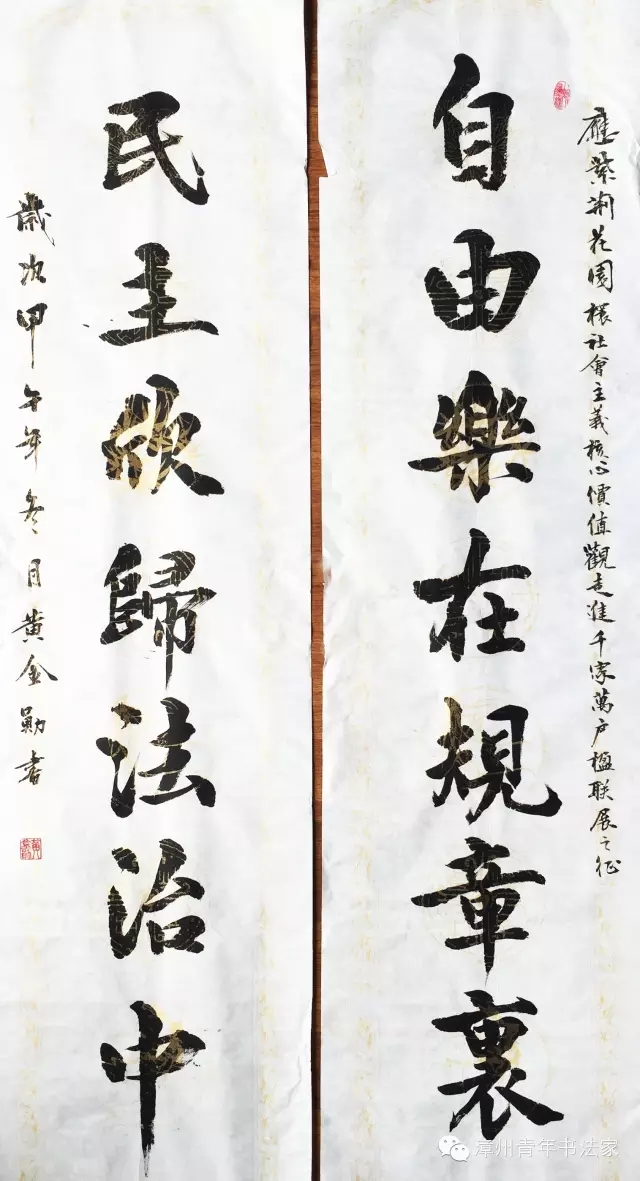 應紫荆花園社會主義核心價值觀走進千家萬户楹联展之征
自由樂在規章裏
民主欣歸法治中
歲次甲午年冬月黄金勛書
漳州青年书法家